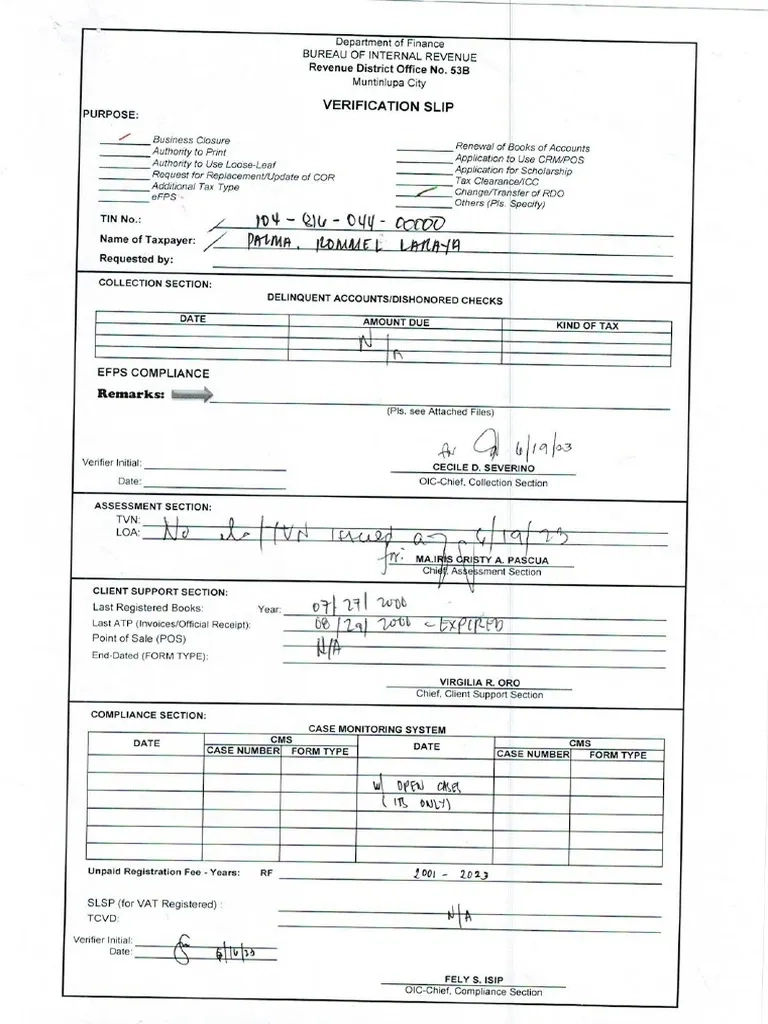 Department of Finance
BUREAU OF INTERNAL REVENUE
Revenue District Office No. 53B
Muntinlupa City
VERIFICATION SLIP
PURPOSE:
Business Closure
Authority to Print
Authority to Use Loose-Leaf
Request for Replacement/Update of COR
Additional Tax Type
eFPS
Renewal of Books of Accounts
Application to Use CRM/POS
Application for Scholarship
Tax Clearance/ICC
Change/Transfer of RDO
Others (Pls. Specify)
TIN No.: 104-816-044-00000
Name of Taxpayer: PALMA, ROMMEL LARAYA
Requested by:
COLLECTION SECTION:
DELINQUENT ACCOUNTS/DISHONORED CHECKS
DATE AMOUNT DUE KIND OF TAX
N/A
EFPS COMPLIANCE
Remarks:
(Pls. see Attached Files)
6/19/23
Verifier Initial:
CECILE D. SEVERINO
Date:
OIC-Chief, Collection Section
ASSESSMENT SECTION:
TVN:
LOA: No TVN issued 6/19/23
for: MA.IRIS CRISTY A. PASCUA
Chief, Assessment Section
CLIENT SUPPORT SECTION:
Last Registered Books: Year: 07/27/2000
Last ATP (Invoices/Official Receipt): 08/29/2000 - EXPIRED
Point of Sale (POS) N/A
End-Dated (FORM TYPE):
VIRGILIA R. ORO
Chief, Client Support Section
COMPLIANCE SECTION:
CASE MONITORING SYSTEM
DATE CMS DATE CMS
CASE NUMBER FORM TYPE CASE NUMBER FORM TYPE
w/ OPEN CASES
(ITS ONLY)
Unpaid Registration Fee - Years: RF 2001 - 2023
SLSP (for VAT Registered) :
TCVD: N/A
Verifier Initial:
Date: 6/16/23
FELY S. ISIP
OIC-Chief, Compliance Section